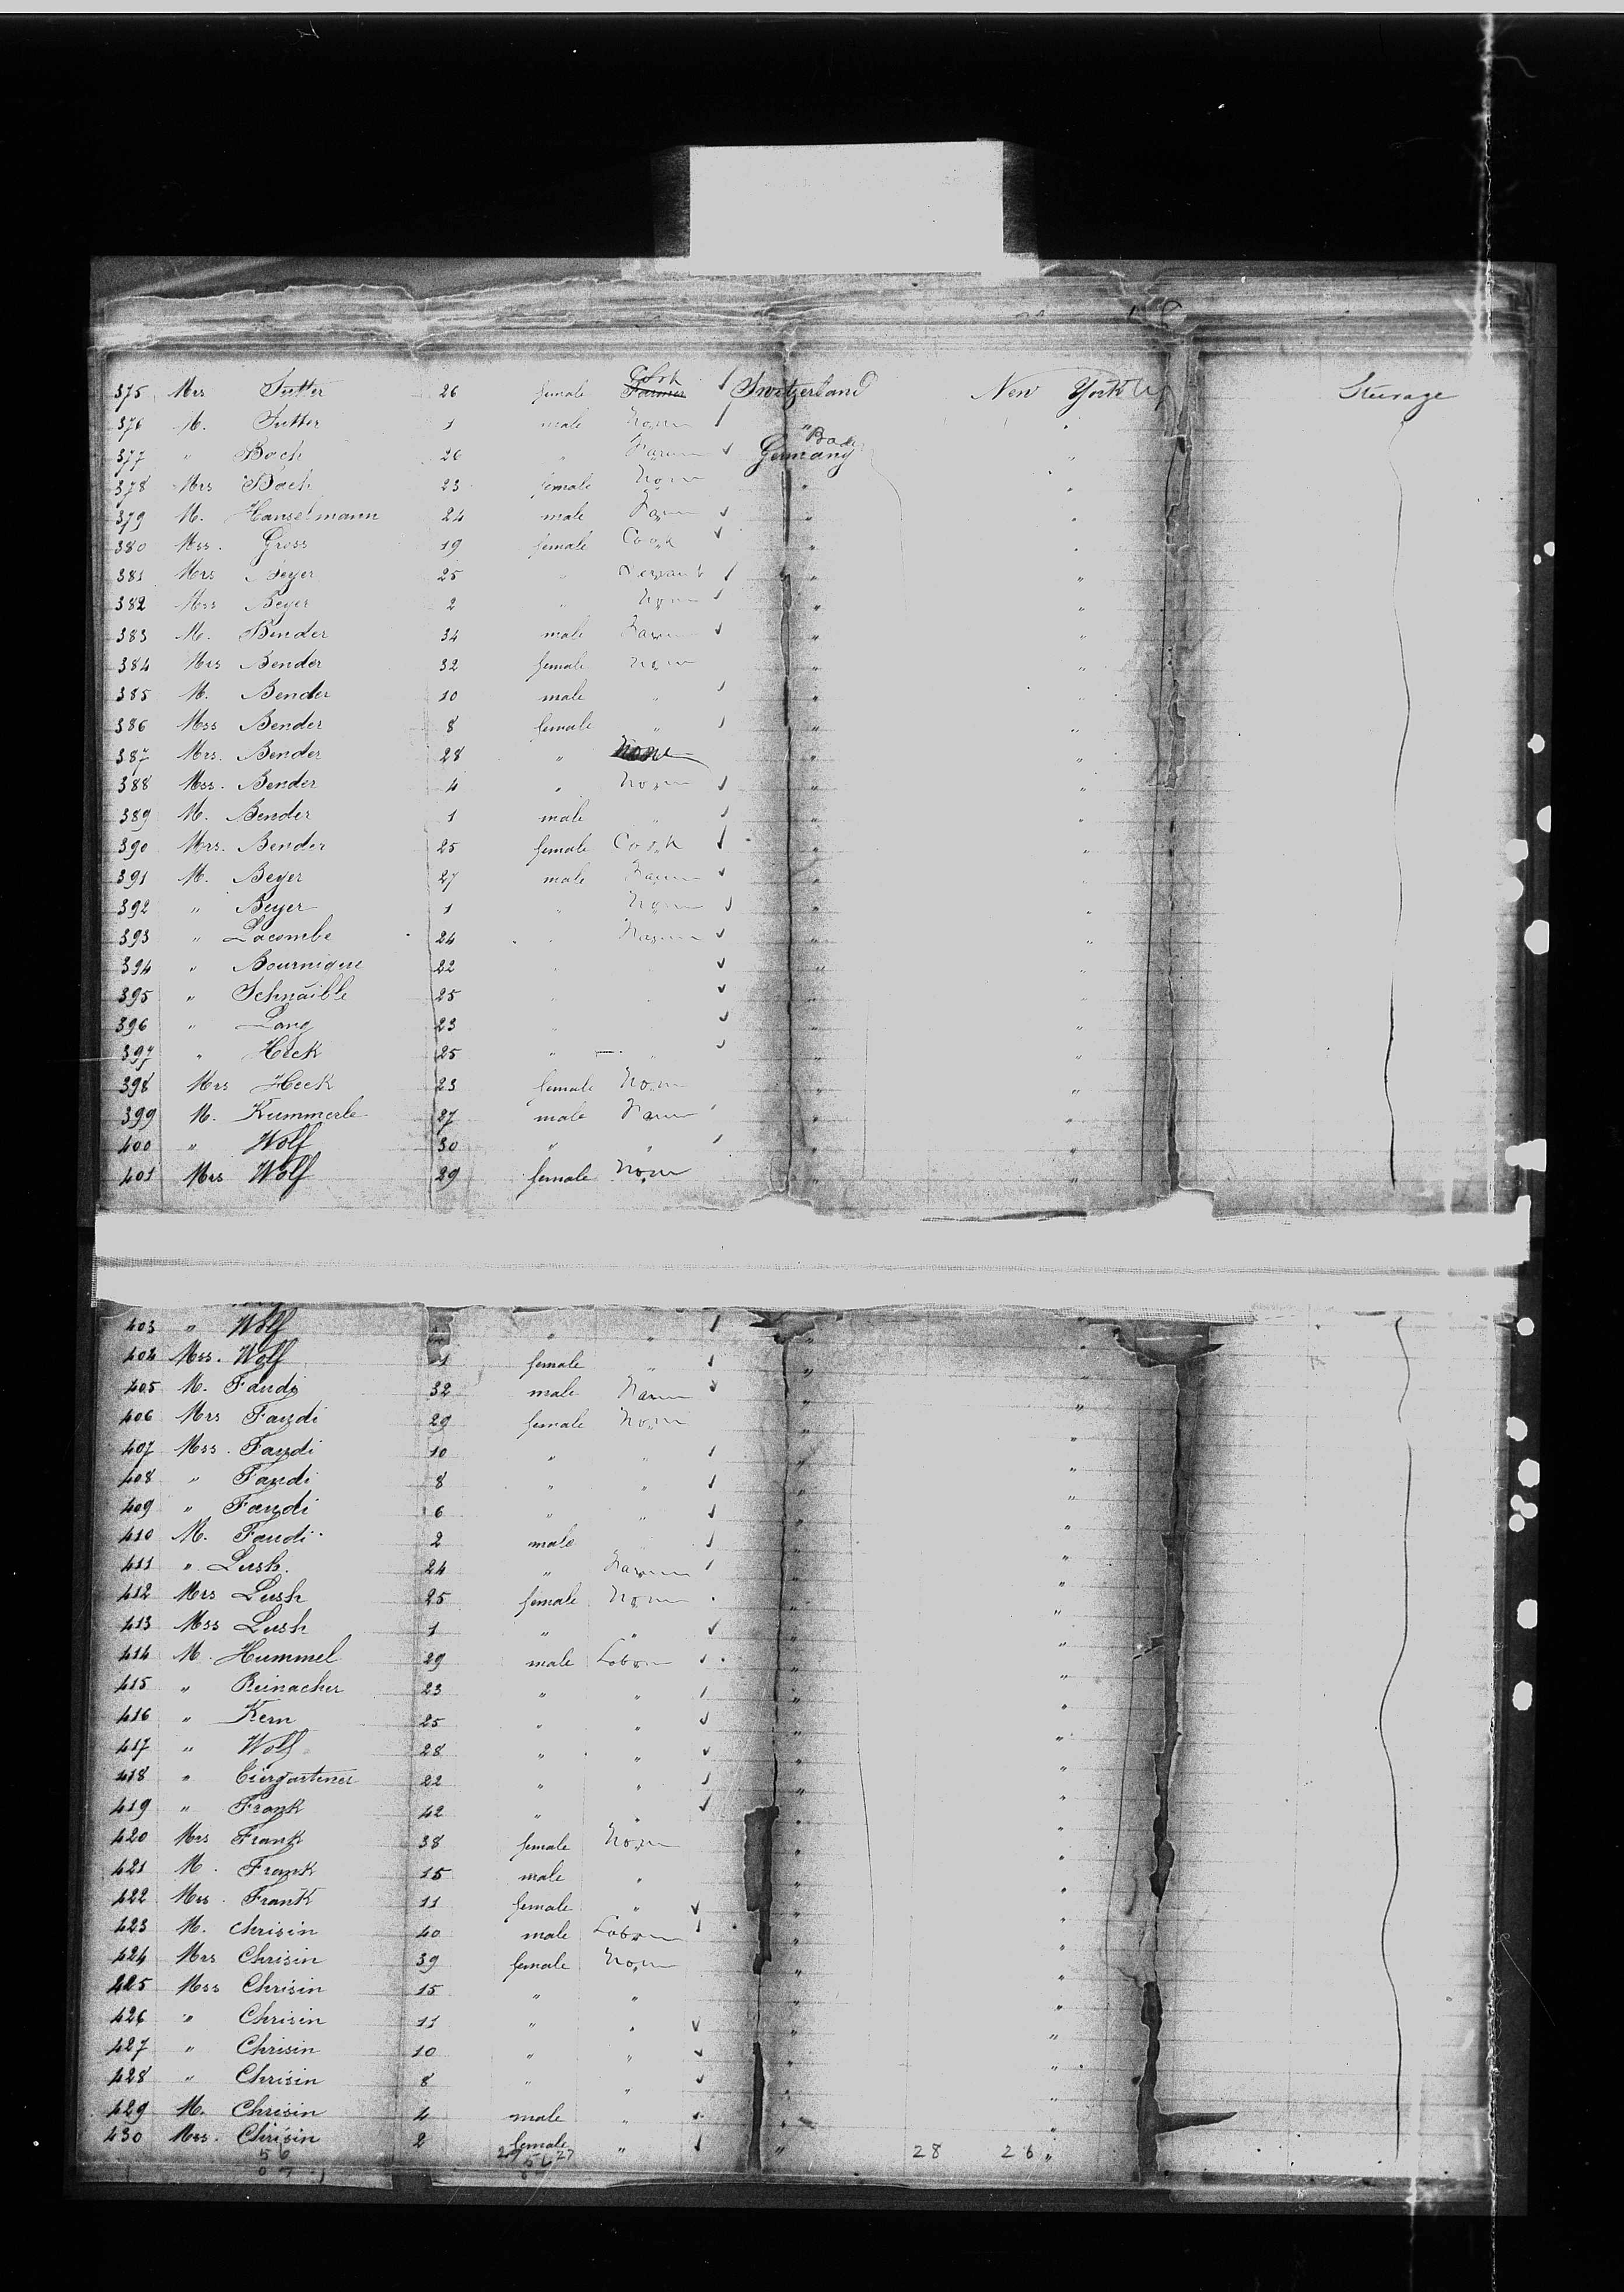 375 Mrs Sutter 26 female Cook Farmer Switzerland New York City Steerage
376 M. Sutter 1 male None "
377 " Bach 26 " Farmer Germany "
378 Mrs Bach 23 female None " "
379 M. Hanselmann 24 male Farmer " "
380 Mss. Gross 19 female Cook " "
381 Mrs Beyer 25 " Servant " "
382 Mss Beyer 2 " None " "
383 M. Bender 34 male Farmer " "
384 Mrs Bender 32 female None " "
385 M. Bender 10 male " " "
386 Mss Bender 8 female " " "
387 Mrs. Bender 28 " None " "
388 Mss. Bender 4 " None " "
389 M. Bender 1 male " " "
390 Mrs. Bender 25 female Cook " "
391 M. Beyer 27 male Farmer " "
392 " Beyer 1 " None " "
393 " Lacombe 24 " Farmer " "
394 " Bournique 22 " " " "
395 " Schnäible 25 " " " "
396 " Lang 23 " " " "
397 " Heck 25 " " " "
398 Mrs Heck 23 female None " "
399 M. Kummerle 27 male Farmer " "
400 " Wolf 30 " " " "
401 Mrs Wolf 29 female None " "
403 " Wolf " " " "
404 Mss. Wolf 1 female " " "
405 M. Faudi 32 male Farmer " "
406 Mrs Faudi 29 female None " "
407 Mss. Faudi 10 " " " "
408 " Faudi 8 " " " "
409 " Faudi 6 " " " "
410 M. Faudi 2 male " " "
411 " Lush 24 " Farmer " "
412 Mrs Lush 25 female None " "
413 Mss Lush 1 " " " "
414 M. Hummel 29 male Labour " "
415 " Reinacher 23 " " " "
416 " Kern 25 " " " "
417 " Wolf 28 " " " "
418 " Eiergartener 22 " " " "
419 " Frank 42 " " " "
420 Mrs Frank 38 female None " "
421 M. Frank 15 male " " "
422 Mss. Frank 11 female " " "
423 M. Chrisin 40 male Labour " "
424 Mrs Chrisin 39 female None " "
425 Mss Chrisin 15 " " " "
426 " Chrisin 11 " " " "
427 " Chrisin 10 " " " "
428 " Chrisin 8 " " " "
429 M. Chrisin 4 male " " "
430 Mss. Chrisin 2 female " " 28 26 "
56 29 56 27